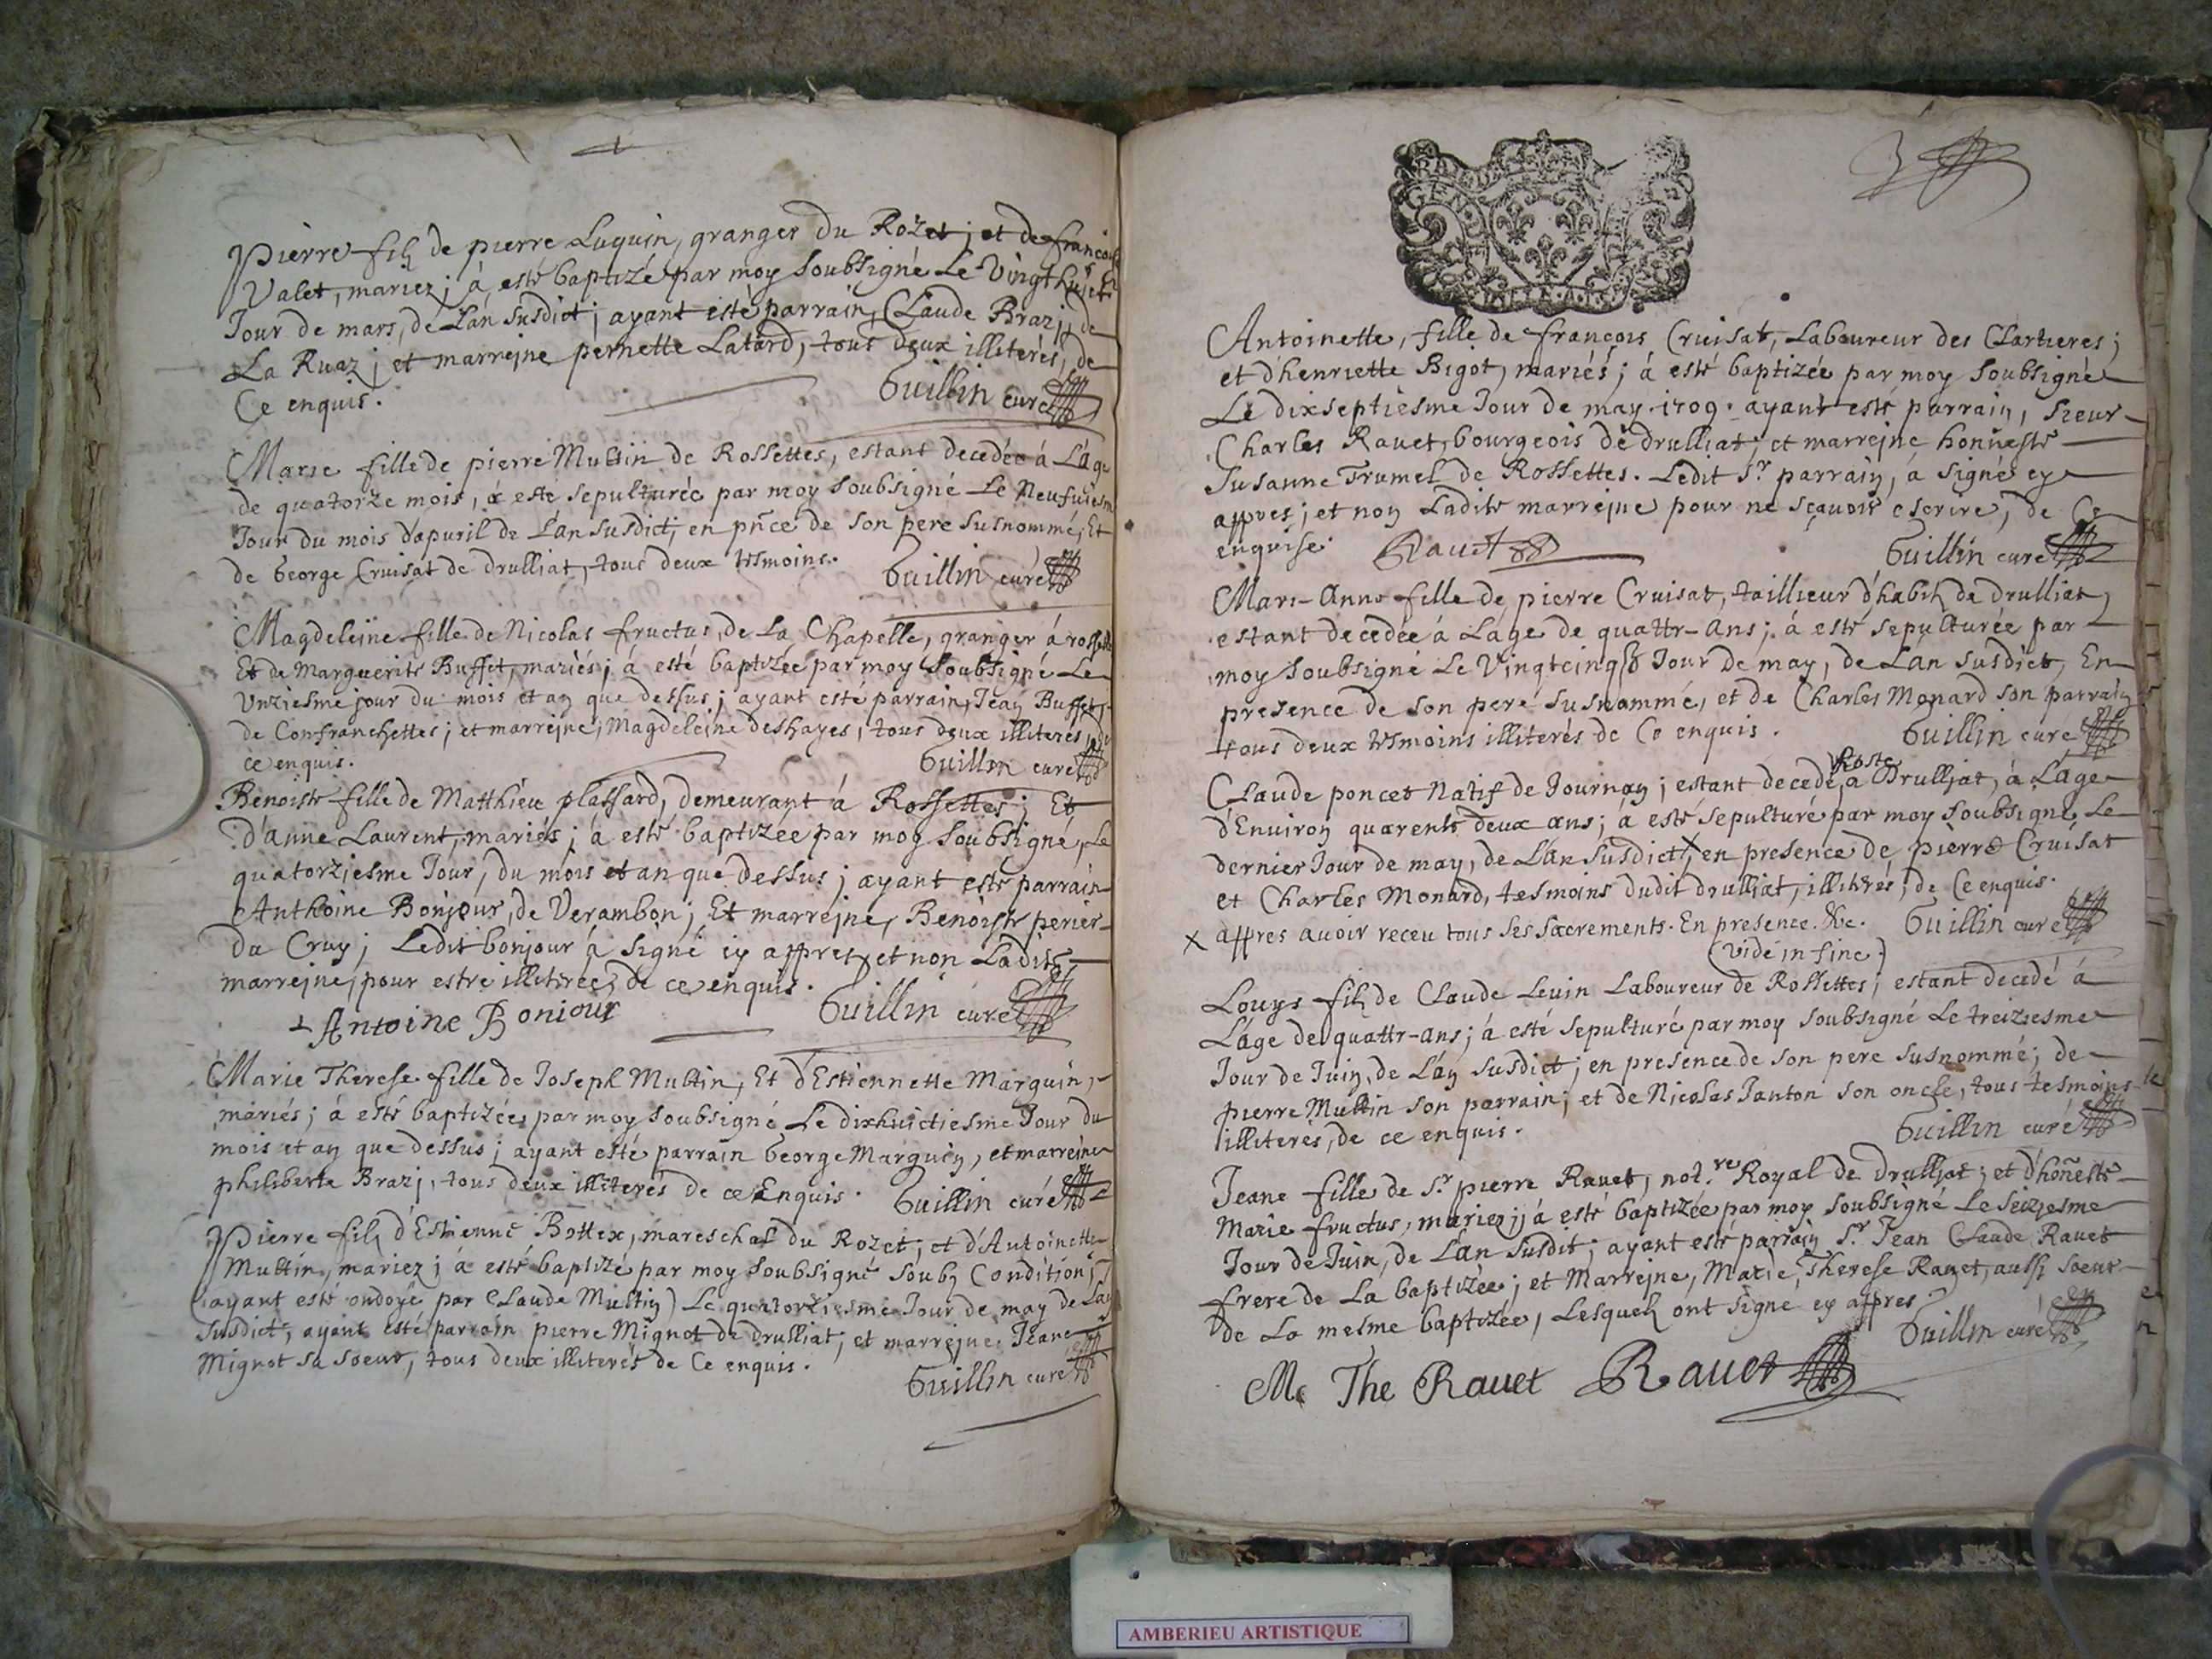 Pierre filz de pierre Luquin, granger du Rozet; et de francoise
Valet, mariez; á esté baptizé par moy soubsigné Le Vingthuict
Jour de mars, de L'án susdict; ayant esté parrain, Claude Brazj, de
La Ruaz; et marrejne pernette Latard, tous deux illiterés, de
Ce enquis.
Guillin curé
Marie fille de pierre Multin de Rossettes, estant decedée á L'áge
de quatorze mois, á esté sepulturée par moy soubsigné Le Neufuiesme
Jour du mois d'apuril de L'án susdict; en pñce de son pere susnommé, Et
de George Cruisat de drulliat, tous deux tesmoins.
Guillin curé
Magdeleine fille de Nicolas fructus, de La Chapelle, granger á rossettes
Et de Marguerite Buffet, mariés; á esté baptizée par moy soubsigné Le
Unziesme jour du mois et an que dessus; ayant esté parrain, Jean Buffet,
de Confranchettes; et marrejne, Magdeleine deshayes, tous deux illiterés, de
ce enquis.
Guillin curé
Benoiste fille de Matthieu plassard, demeurant á Rossettes; Et
d'anne Laurent, mariés; á esté baptizée par moy soubsigné, Le
quatorziesme Jour, du mois et an que dessus; ayant esté parrain
Anthoine Bonjour, de Verambon; Et marrejne, Benoiste perier
du Cruy; Ledit bonjour á signé cy appres, et non Ladite
marrejne, pour estre illiterée, de ce enquis.
Guillin curé
Antoine Boniour
Marie Therese fille de Joseph Multin, Et d'Estiennette Marguin,
mariés; á esté baptizée, par moy soubsigné Le dixhuictiesme Jour du
mois et an que dessus; ayant esté parrain George Marguin, et marreine
philiberte Brazj, tous deux illiterés de ce Enquis.
Guillin curé
Pierre filz d'Estienne Bottex, mareschal du Rozet; et d'Antoinette
Multin, mariez; á esté baptizé par moy soubsigné soubz Condition;
(ayant esté ondoyé par Claude Multin) Le quatorziesme Jour de may de Lan
susdict, ayant esté parrain pierre Mignot de drulliat; et marrejne, Jeane
Mignot sa soeur, tous deux illiterés de Ce enquis.
Guillin curé
3
GEN
Antoinette, fille de francois Cruisat, Laboureur des Clartieres;
et d'henriette Bigot, mariés; á esté baptizée par moy soubsigné
Le dixseptiesme Jour de may 1709. ayant esté parrain, sieur
Charles Rauet, bourgeois de drulliat; et marrejne honneste
Susanne Trumel de Rossettes. Ledit Sr. parrain, á signé cy
appres; et non Ladite marrejne pour ne sçauoir escrire, de Ce
enquise.
Rauet
Guillin curé
Marie-Anne fille de pierre Cruisat, tailleur d'habitz de drulliat,
estant decedée á L'áge de quattr-ans; á esté sepulturée par
moy soubsigné Le Vingtcinq Jour de may, de L'an susdict, En
presence de son pere susnommé, et de Charles Monard son parrain
tous deux tesmoins illiterés de Ce enquis.
Guillin curé
Claude poncet Natif de Journan; estant decedé, a Drulliat, á L'áge
d'Environ quarente deux ans; á esté sepulturé par moy soubsigné, Le
dernier Jour de may, de L'án susdict x, en presence de pierre Cruisat
et Charles Monard, tesmoins dudit drulliat, illiterés, de Ce enquis.
x appres auoir receu tous ses sacrements. En presence. &c.
Guillin curé
(Vide in fine)
Louys filz de Claude Leuin Laboureur de Rossettes; estant decedé á
L'áge de quattr-ans; á esté sepulturé par moy soubsigné Le treiziesme
Jour de Juin, de L'án susdict; en presence de son pere susnommé; de
pierre Multin son parrain; et de Nicolas Janton son oncle, tous tesmoins
illiterés, de ce enquis.
Guillin curé
Jeane fille de Sr. pierre Rauet, not.re Royal de drulliat; et d'hoñeste
Marie fructus, mariez; á esté baptizée par moy soubsigné Le seiziesme
Jour de Juin, de L'án susdit; ayant esté parrain Sr. Jean Claude Rauet
frere de La baptizée; et Marrejne, Marie Therese Rauet, aussi soeur
de La mesme baptizée, Lesquelz ont signé cy appres.
Guillin curé
M. The Rauet Rauet
AMBERIEU ARTISTIQUE